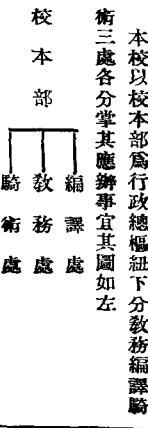 本校以校本部爲行政總樞紐下分敎務編譯騎
術三處各分掌其應辦事宜其圖如左
校本部
編譯處
敎務處
騎術處